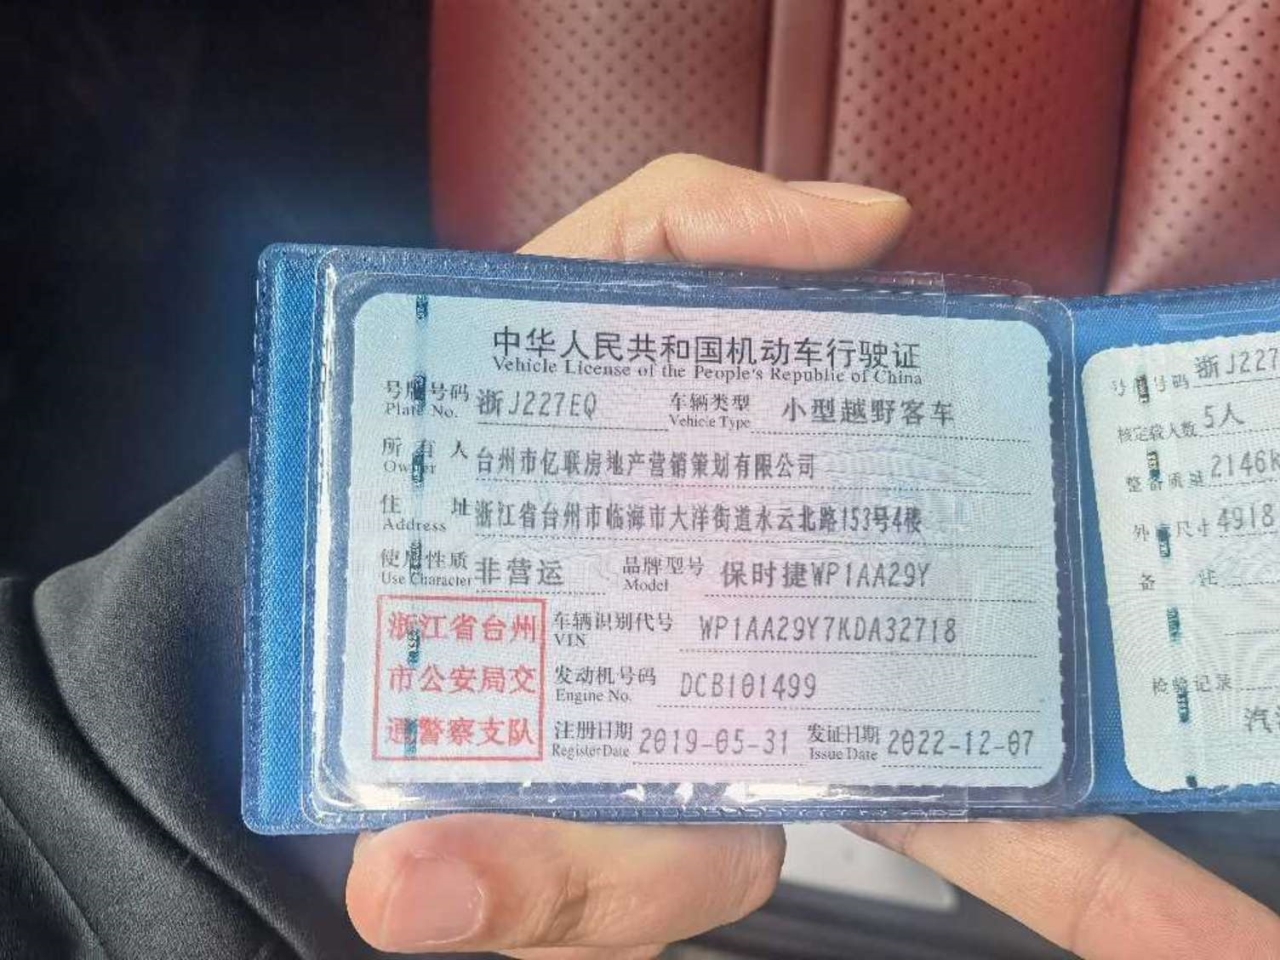 中华人民共和国机动车行驶证
Vehicle License of the People's Republic of China
号牌号码 浙J227EQ 车辆类型 小型越野客车
Plate No. Vehicle Type
所有人 台州市亿联房地产营销策划有限公司
Owner
住址 浙江省台州市临海市大洋街道水云北路153号4楼
Address
使用性质 非营运 品牌型号 保时捷WP1AA29Y
Use Character Model
浙江省台州
市公安局交
通警察支队
车辆识别代号 WP1AA29Y7KDA32718
VIN
发动机号码 DCB101499
Engine No.
注册日期 2019-05-31 发证日期 2022-12-07
Register Date Issue Date
号牌号码 浙J227
核定载人数 5人
整备质量 2146k
外廓尺寸 4918
备注
检验记录
汽